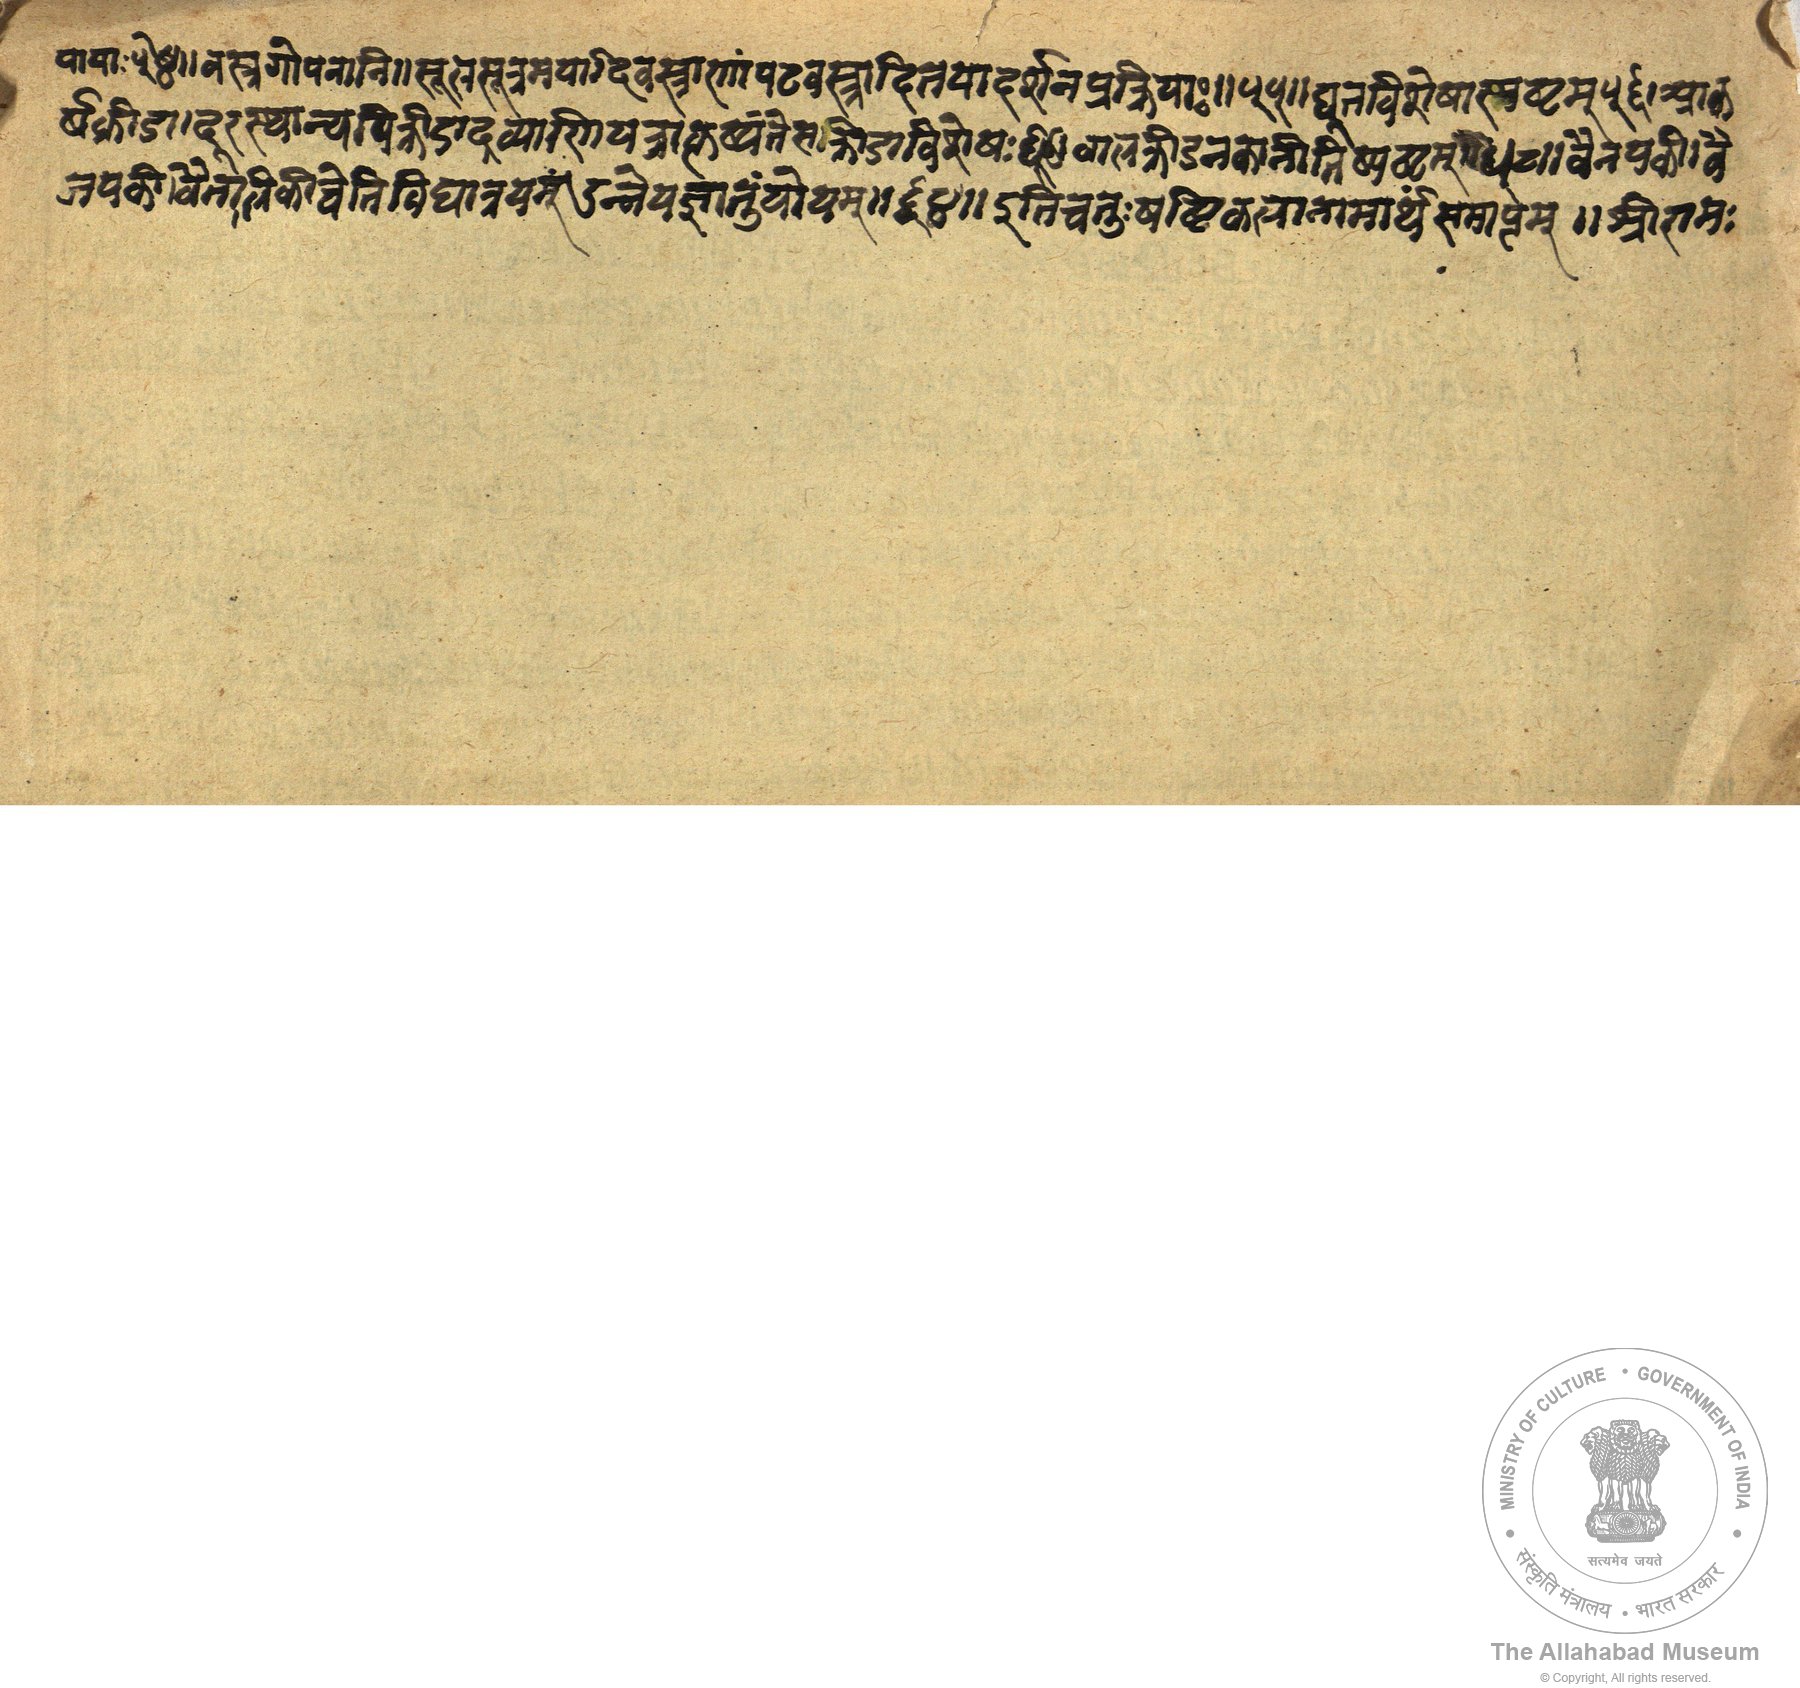 पायाः ५४॥ वस्त्रगोपनानि॥ सूत्नसूत्रमयादिवस्त्राणां पटवस्त्रादितया दर्शनप्रक्रियाः॥ ५५॥ द्यूतविशेषास्पष्टम् ५६। आक
र्षक्रीडा। दूरस्थान्यपि क्रीडाद्रव्याणि यत्राकृष्यंते स क्रीडाविशेषः बालक्रीडनकानीति स्पष्टम् ५८॥ वैनयकी। वै
जयकी। वैतालिकी वेति विद्यात्रयम् उन्नेयज्ञातुं योग्यम्॥ ६४॥ इति चतुःषष्टिकलानामार्थं समाप्तम्॥ श्रीरामः
MINISTRY OF CULTURE • GOVERNMENT OF INDIA
सत्यमेव जयते
संस्कृति मंत्रालय • भारत सरकार
The Allahabad Museum
© Copyright, All rights reserved.